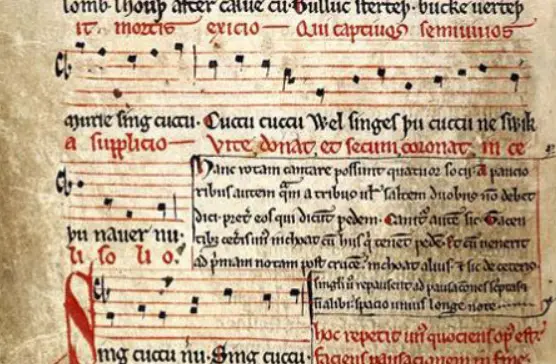 lomb lhouþ after calue cu. Bulluc sterteþ. bucke uerteþ
it mortis exicio Qui captiuos semiuiuos
murie sing cuccu. Cuccu cuccu Wel singes þu cuccu ne swik
a supplicio Vite donat et secum coronat in ce
þu nauer nu.
li so li o.
Hanc rotam cantare possunt quatuor socij. A paucio
ribus autem quam a tribus uel saltem duobus non debet
dici. preter eos qui dicunt pedem. Canitur autem sic. Tacen
tibus ceteris unus inchoat cum hijs qui tenent pedem. Et cum uenerit
ad primam notam post crucem. inchoat alius. & sic de ceteris.
singuli uero repausent ad pausaciones scriptas &
non alibi. spacio unius longe note.
Sing cuccu nu. Sing cuccu.
hoc repetit unus quociens opus est.
faciens pausacionem in fine.